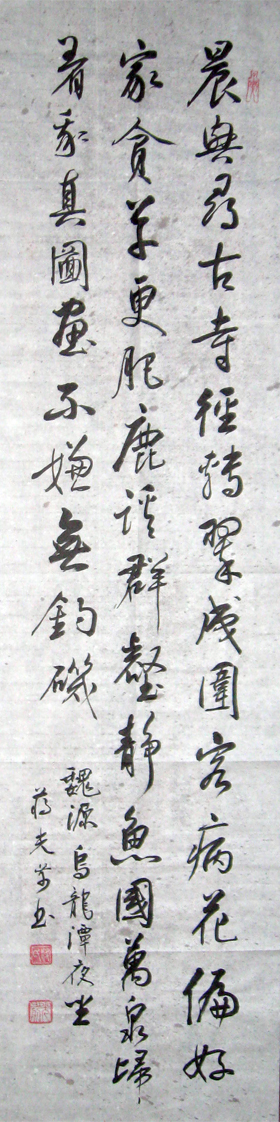 晨興尋古寺徑轉翠成圍客病花偏好
家貧草更肥鹿溪群壑靜魚國萬泉歸
着我真圖畫不嫌無釣磯
魏源烏龍潭夜坐
蔣書